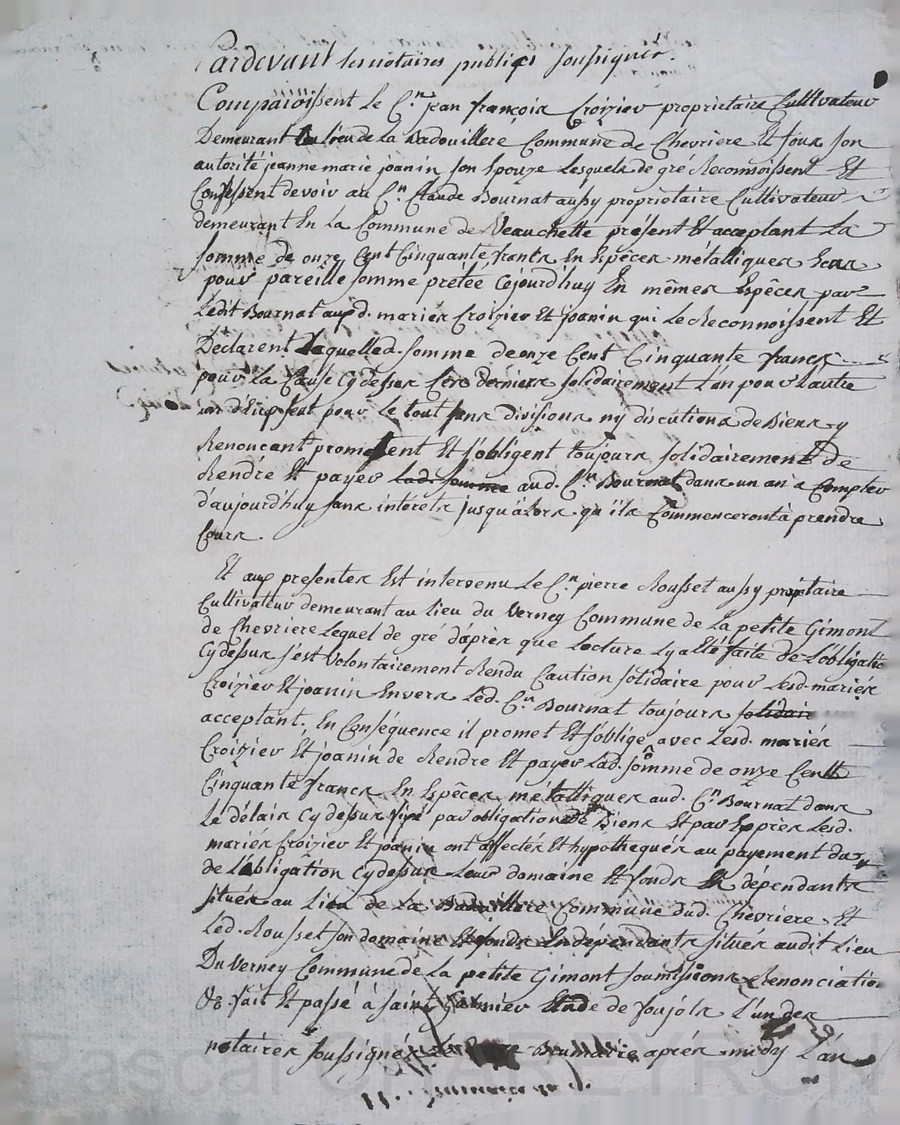 Pardevant les notaires publiqs soussignés.
Comparoissent le C.en jean françois Croizier propriettaire Cultivateur
Demeurant au lieu de la Badouillere Commune de Chevriere Et sous son
autorité jeanne marie joanin son Epouze Lesquels de gré Reconnoissent Et
Confessent devoir au C.en Claude Bournat aussy propriétaire Cultivateur
demeurant En la Commune de Veauchette présent Et acceptant La
somme de onze Cent Cinquante francs En Espèces métalliques
pour pareille somme prêtée Cejourd'huy En mêmes Espêces par
Ledit Bournat auxd. mariés Croizier Et joanin qui Le Reconnoissent Et
Declarent Laquelle d. somme de onze Cent Cinquante francs
pour La Cause Cydessus Ces derniers solidairement L'un pour L'autre
un d'Eux seul pour Le tout sans divisions ny discutions de Biens y
Renonçant promettent Et s'obligent toujours solidairement de
Rendre Et payer lad. somme aud. C.en Bournat dans un an a Compter
d'aujourd'huy sans intérêts jusqu'alors qu'ils Commenceront à prendre
Cours.
Et aux presentes Est intervenu Le C.en pierre Rousset aussy proptaire
Cultivateur demeurant au lieu du Verney Commune de La petite Gimont
de Chevriere Lequel de gré d'après que Lecture Lya Eté faite de L'obligatio
Cydessus s'est Volontairement Rendu Caution solidaire pour Lesd. mariés
Croizier Et joanin Envers Led. C.en Bournat toujours solidair
acceptant. En Conséquence il promet Et s'oblige avec Lesd. mariés
Croizier Et joanin de Rendre Et payer Lad. somme de onze Cents
Cinquante francs En Espêces métalliques aud. C.en Bournat dans
Le délais Cydessus fixé par obligation de Biens Et par Exprès Lesd.
mariés Croizier Et joanin ont affectés Et hypothequés au payement
de L'obligation Cydessus Leur domaine Et fonds En dépendants
situés au Lieu de La Badouillere Commune dud. Chevriere Et
Led. Rousset son domaine Et fonds En dépendants situés audit Lieu
Du Verney Commune de La petite Gimont soumissions Renonciatio
&c fait Et passé à saint Etude de foujols L'un des
notaires soussignés Brumaire après midy L'an